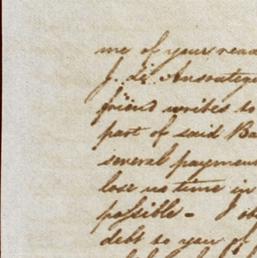 me of your read
J. de Ansoategui
friend writes to
part of said Ba
several paymen
lose no time in
possible - I
debt to you of